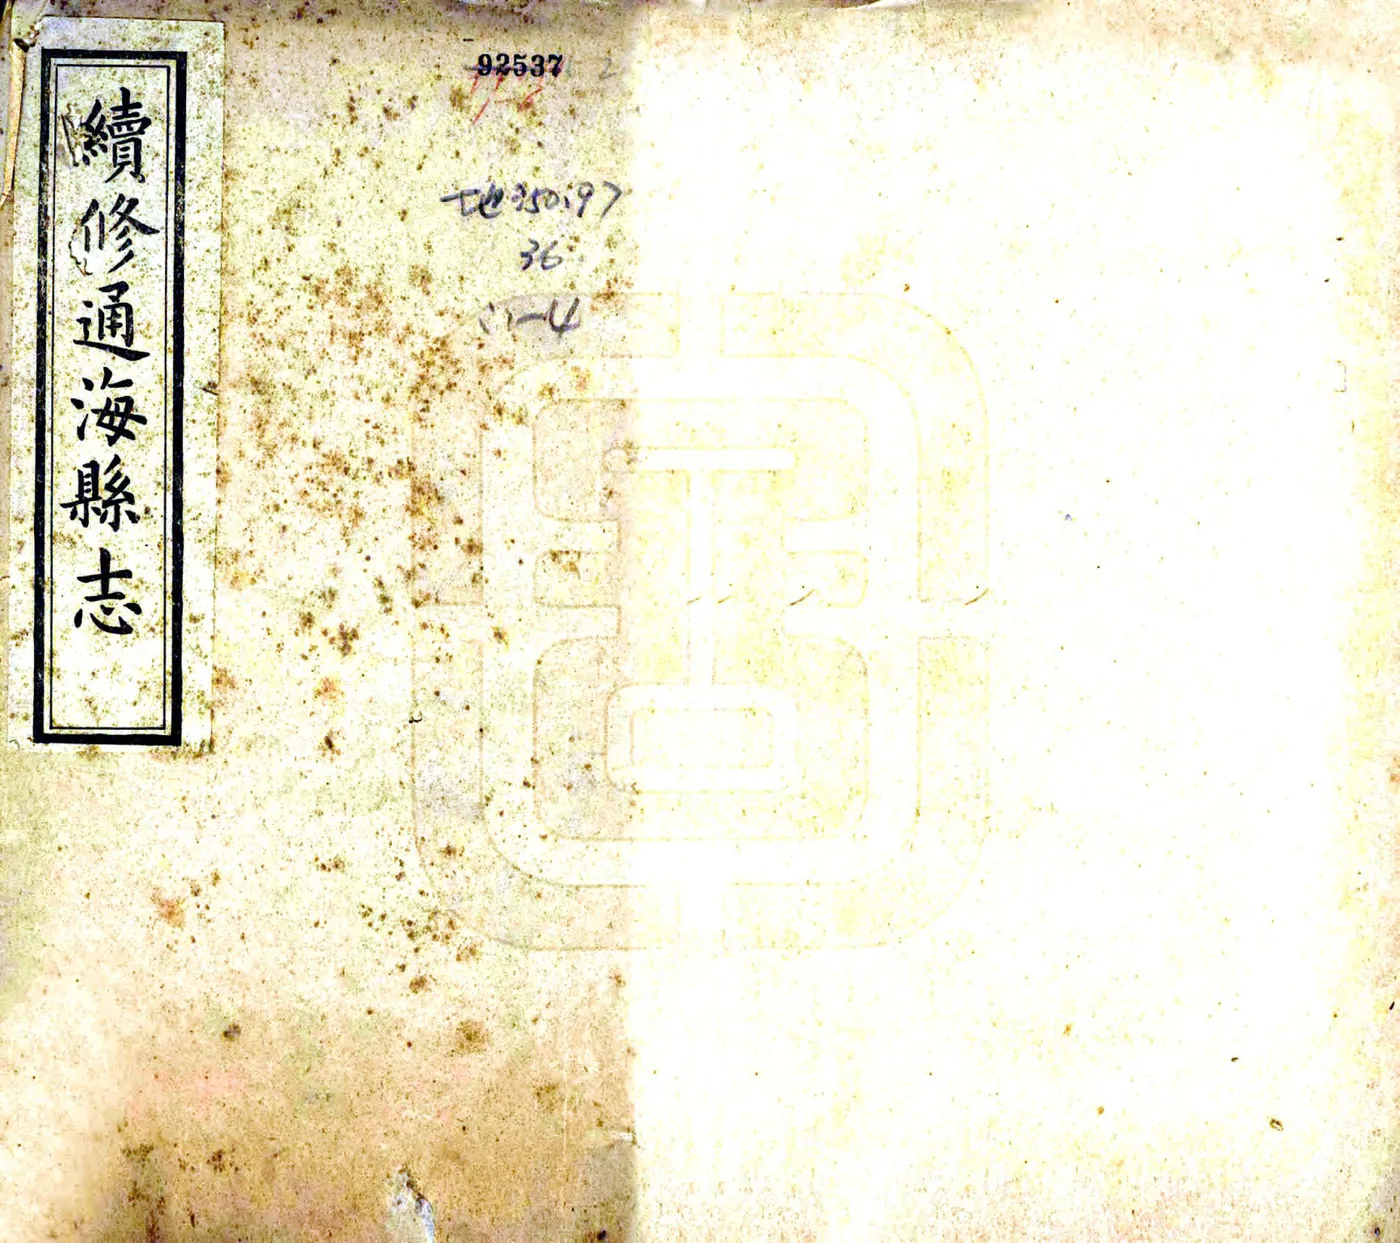 續修通海縣志
92537
地350.197
36
:1-4